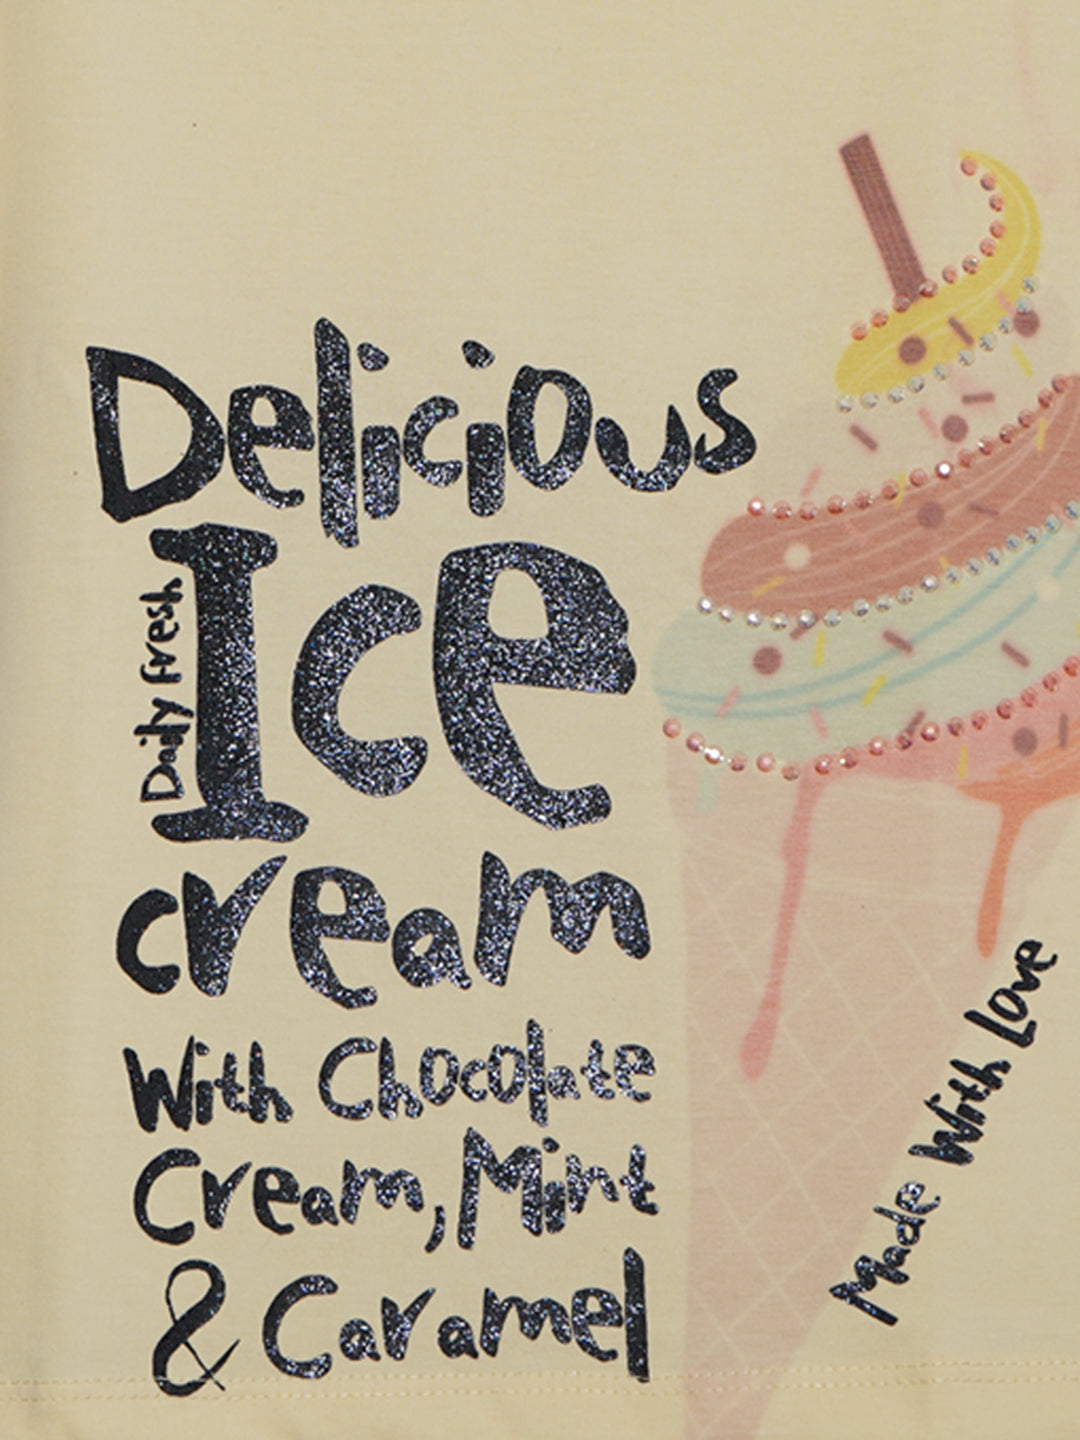 Delicious
Daily Fresh
Ice
cream
With Chocolate
Cream, Mint
& Caramel
Made With Love